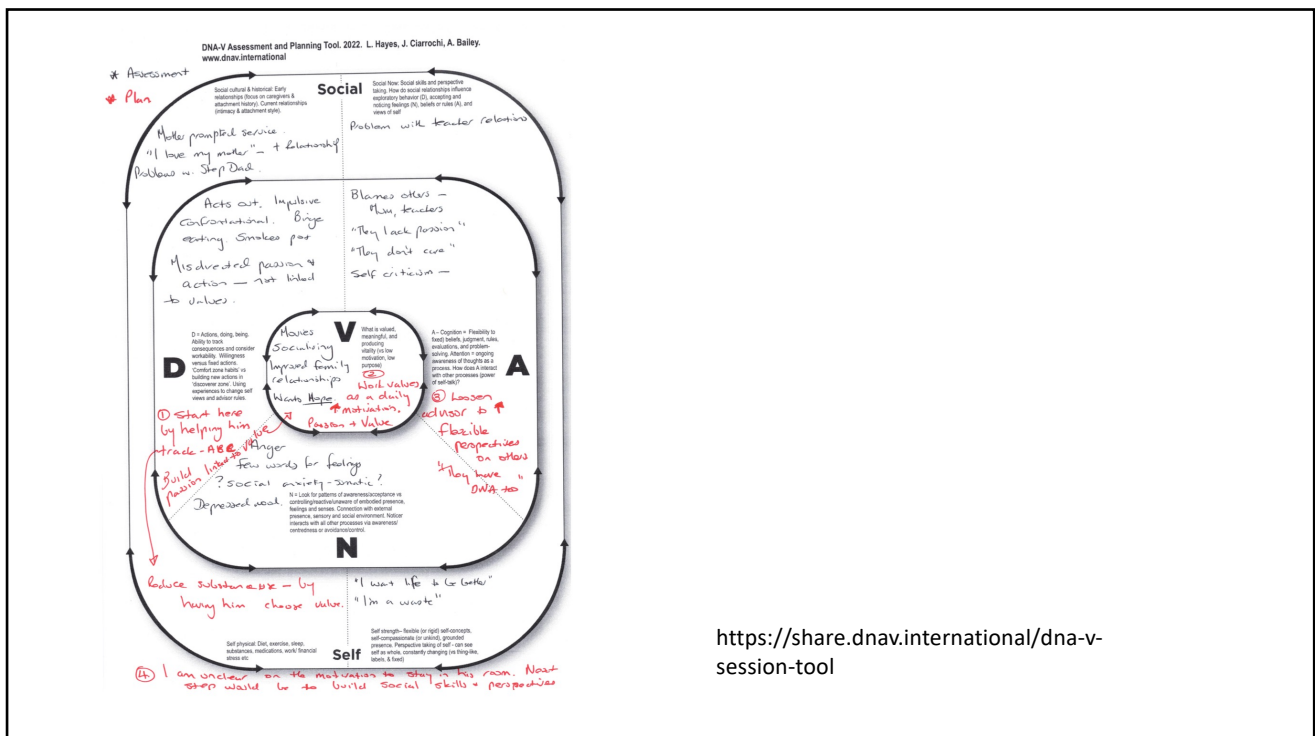 DNA-V Assessment and Planning Tool. 2022. L. Hayes, J. Ciarrochi, A. Bailey.
www.dnav.international
* Assessment
* Plan
Social cultural & historical: Early
relationships (focus on caregivers &
attachment history), Current relationships
(intimacy & attachment style).
Social
Social Now: Social skills and perspective
taking. How do social relationships influence
exploratory behavior (D), accepting and
noticing feelings (N), beliefs or rules (A), and
views of self
Mother prompted service.
"I love my mother" – + Relationship
Problems w. Step Dad.
Problem with teacher relations
Acts out. Impulsive
Confrontational. Binge
eating. Smokes pot
Misdirected passion &
action – not linked
to values.
Blames others –
Mum, teachers
"They lack passion"
"They don't care"
Self criticism –
D = Actions, doing, being.
Ability to track
consequences and consider
workability. Willingness
versus fixed actions.
'Comfort zone habits' vs
building new actions in
'discoverer zone'. Using
experiences to change self
views and advisor rules.
D
Movies
Socialising
Improved family
relationships
Wants Hope.
V
What is valued,
meaningful, and
producing
vitality (vs low
motivation, low
purpose)
② Work values
as a daily
motivation.
Passion + Value
A – Cognition = Flexibility to
fixed) beliefs, judgment, rules,
evaluations, and problem-
solving. Attention = ongoing
awareness of thoughts as a
process. How does A interact
with other processes (power
of self-talk)?
A
① Start here
by helping him
track - ABC
Build
passion linked to value
③ Loosen
advisor to
flexible
perspectives
on others
"They have
DNA too"
Anger
Few words for feelings
? Social anxiety - somatic?
Depressed mood.
N = Look for patterns of awareness/acceptance vs
controlling/reactive/unaware of embodied presence,
feelings and senses. Connection with external
presence, sensory and social environment. Noticer
interacts with all other processes via awareness/
centredness or avoidance/control.
N
Reduce substance use – by
having him choose value.
"I want life to be better"
"I'm a waste"
Self physical: Diet, exercise, sleep,
substances, medications, work/ financial
stress etc
Self
Self strength– flexible (or rigid) self-concepts,
self-compassionate (or unkind), grounded
presence. Perspective taking of self - can see
self as whole, constantly changing (vs thing-like,
labels, & fixed)
④ I am unclear on the motivation to stay in his room. Next
step would be to build social skills + perspectives
https://share.dnav.international/dna-v-
session-tool